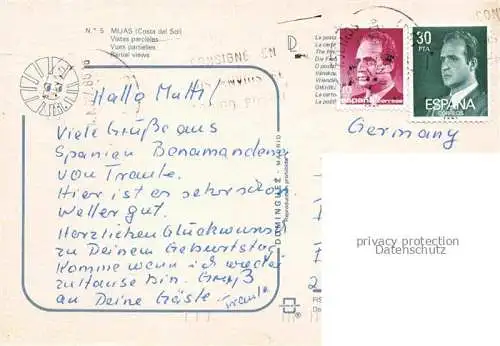 N.° 5 MIJAS (Costa del Sol)
Vistas parciales
Vues partielles
Partial views
CONSIGNE EN
30
PTA
españa correos
ESPAÑA
CORREOS
Hallo Mutti!
Viele Grüße aus
Spanien Benamandena
von Traute.
Hier ist es sehr schön
Wetter gut.
Herzlichen Glückwunsch
zu Deinem Geburtstag
Komme wenn ich wieder
zuHause bin. Gruß
an Deine Gäste. Traute
Germany
DOMINGUEZ - MADRID
Reproducción prohibida
privacy protection
Datenschutz